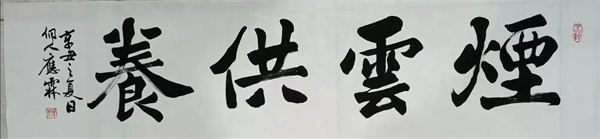 煙雲供養
辛丑之夏日
個人應霖